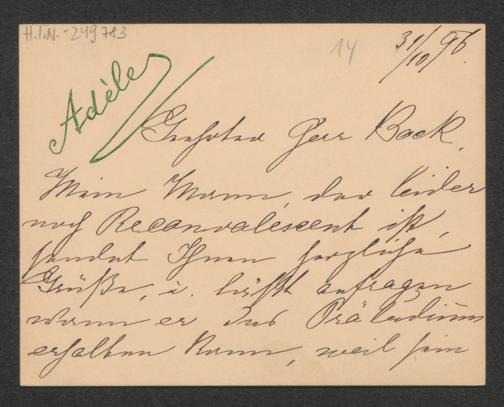 H.I.N.-249783
14
31/10/96.
Adèle
Geehrter Herr Bock,
Mein Mann, der leider
noch Reconvalescent ist,
sendet Ihnen herzliche
Grüße, u. läßt anfragen
wann er das Präludium
erhalten kann, weil sein